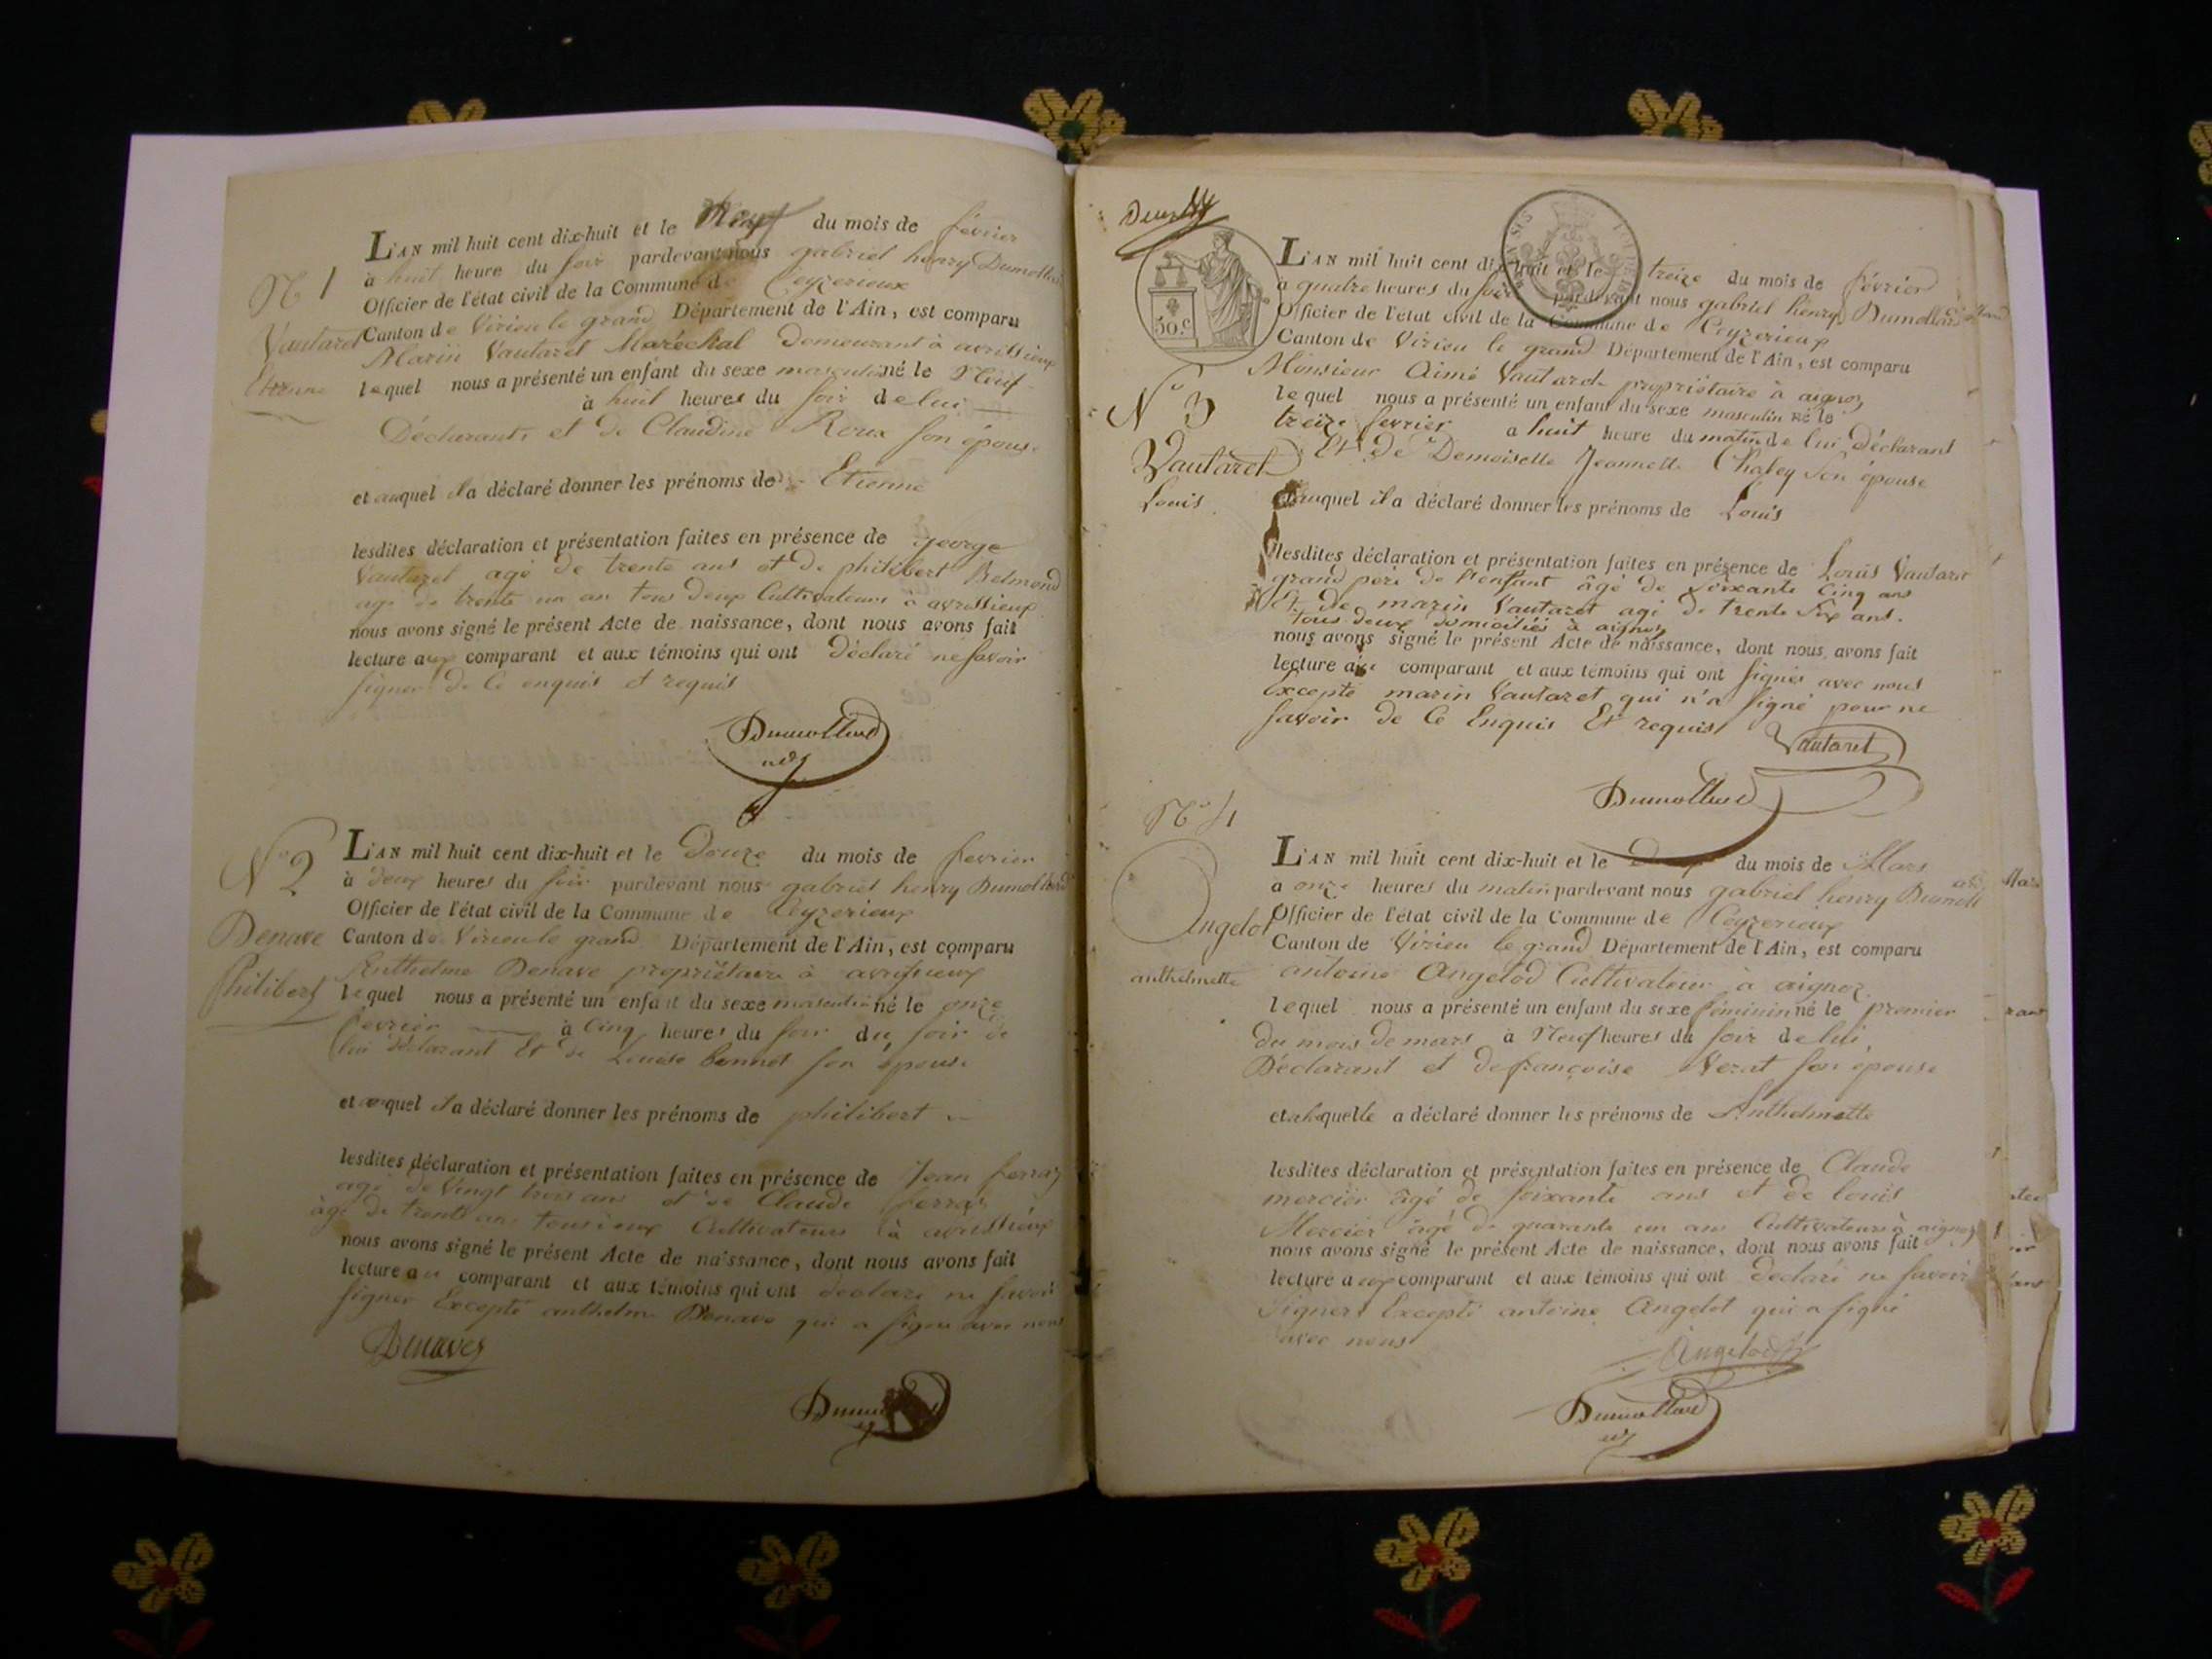 N° 1
Vautaret
Etienne
L'AN mil huit cent dix-huit et le Neuf du mois de février
à huit heure du soir pardevant nous gabriel henry Dumollard
Officier de l'état civil de la Commune de Ceyzerieux
Canton de Virieu le grand Département de l'Ain, est comparu
Marin Vautaret Maréchal Demeurant à avrissieux
lequel nous a présenté un enfant du sexe masculin né le Neuf
à huit heures du soir de lui
Déclarant et de Claudine Roux son épouse
et auquel il a déclaré donner les prénoms de Etienne
lesdites déclaration et présentation faites en présence de george
Vautaret agé de trente ans et de philibert Belmond
agé de trente un an tous deux Cultivateurs à avrissieux
nous avons signé le présent Acte de naissance, dont nous avons fait
lecture aux comparant et aux témoins qui ont déclaré ne savoir
signer de ce enquis et requis
Dumollard
N° 2
Denave
Philibert
L'AN mil huit cent dix-huit et le Douze du mois de fevrier
à deux heures du soir pardevant nous gabriel henry Dumollard
Officier de l'état civil de la Commune de Ceyzerieux
Canton de Virieu le grand Département de l'Ain, est comparu
Anthelme Denave propriétaire à avrissieux
lequel nous a présenté un enfant du sexe masculin né le onze
fevrier à Cinq heures du soir du soir de
lui Déclarant Et de Louise bonnet son épouse
et auquel il a déclaré donner les prénoms de philibert
lesdites déclaration et présentation faites en présence de Jean ferraz
agé de Vingt trois ans et de Claude ferraz
âgé de trente ans tous deux Cultivateurs à avrissieux
nous avons signé le présent Acte de naissance, dont nous avons fait
lecture au comparant et aux témoins qui ont declaré ne savoir
signer Excepté anthelme Denave qui a signé avec nous
Denavez
Deux
50.c
N° 3
Vautaret
Louis
L'AN mil huit cent dix-huit et le treize du mois de février
à quatre heures du soir pardevant nous gabriel henry Dumollard
Officier de l'état civil de la Commune de Ceyzerieux
Canton de Virieu le grand Département de l'Ain, est comparu
Monsieur Aimé Vautaret propriétaire à aignoz
lequel nous a présenté un enfant du sexe masculin né le
treize fevrier a huit heure du matin de lui Déclarant
Et de Demoiselle Jeannette Chaley son épouse
auquel il a déclaré donner les prénoms de Louis
lesdites déclaration et présentation faites en présence de Louis Vautaret
grand père de l'enfant âgé de soixante Cinq ans
Et de marin Vautaret agé de trente Six ans.
tous deux domiciliés à aignoz
nous avons signé le présent Acte de naissance, dont nous avons fait
lecture aux comparant et aux témoins qui ont signés avec nous
Excepté marin Vautaret qui n'a signé pour ne
savoir de Ce Enquis Et requis
Vautaret
Dumollard
N° 4
Angelot
anthelmette
L'AN mil huit cent dix-huit et le Deux du mois de Mars
à onze heures du matin pardevant nous gabriel henry Dumoll
Officier de l'état civil de la Commune de Ceyzerieux
Canton de Virieu le grand Département de l'Ain, est comparu
antoine Angelod Cultivateur à aignoz
lequel nous a présenté un enfant du sexe féminin né le premier
du mois de mars à Neuf heures du soir de lui
Déclarant et de françoise Verat son épouse
et a laquelle a déclaré donner les prénoms de Anthelmette
lesdites déclaration et présentation faites en présence de Claude
mercier âgé de soixante ans et de louis
Mercier âgé de quarante un ans Cultivateurs à aignoz
nous avons signé le présent Acte de naissance, dont nous avons fait
lecture aux comparant et aux témoins qui ont declaré ne savoir
Signer Excepté antoine Angelot qui a signé
avec nous
Angelod
Dumollard